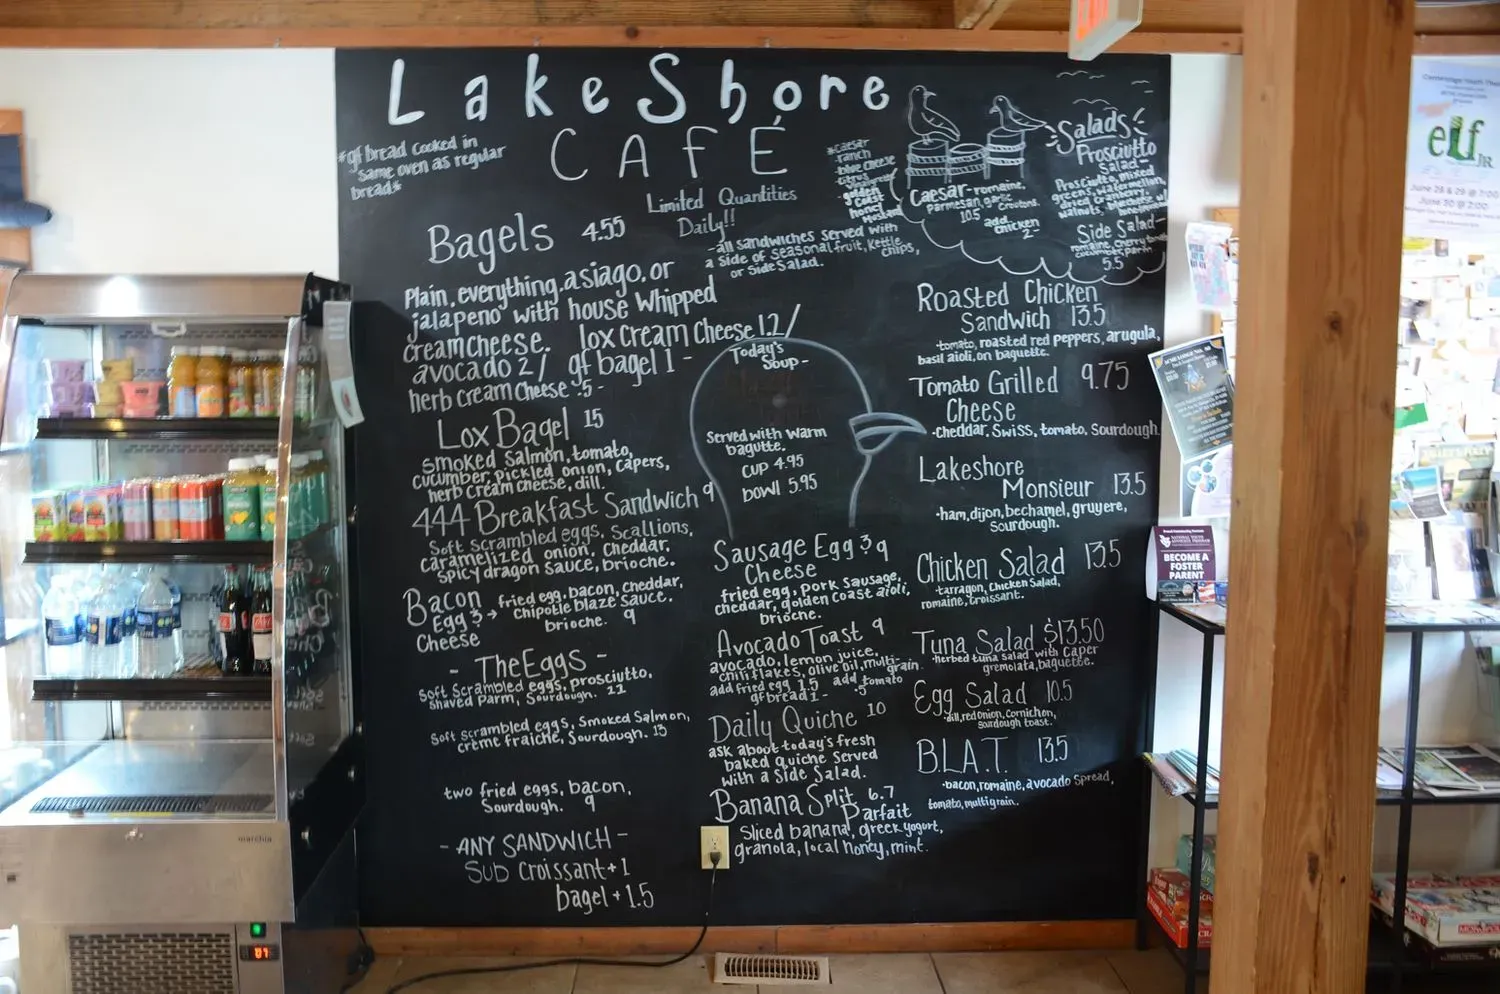 LakeShore
CAFÉ
*gf bread cooked in
same oven as regular
bread*
Limited Quantities
Daily!!
-all sandwiches served with
a side of seasonal fruit, kettle chips,
or side salad.
Bagels 4.55
Plain, everything, asiago, or
jalapeno with house whipped
creamcheese. lox cream cheese 1.2/
avocado 2/ gf bagel 1 -
herb cream cheese .5 -
Lox Bagel 15
smoked salmon, tomato,
cucumber, pickled onion, capers,
herb cream cheese, dill.
444 Breakfast Sandwich 9
Soft scrambled eggs, scallions,
caramelized onion, cheddar,
spicy dragon sauce, brioche.
Bacon
Egg &
Cheese
fried egg, bacon, cheddar,
chipotle blaze sauce.
brioche. 9
- The Eggs -
Soft scrambled eggs, prosciutto,
shaved parm, sourdough. 11
soft scrambled eggs, smoked salmon,
crème fraiche, sourdough. 13
two fried eggs, bacon,
sourdough. 9
- ANY SANDWICH -
SUB croissant + 1
bagel + 1.5
Today's
Soup -
served with warm
bagutte.
CUP 4.95
BOWL 5.95
Sausage Egg & 9
Cheese
fried egg, pork sausage,
cheddar, golden coast aioli,
brioche.
Avocado Toast 9
avocado, lemon juice,
chili flakes, olive oil, multi-grain
add fried egg 1.5 add tomato .5
gf bread 1 -
Daily Quiche 10
ask about today's fresh
baked quiche served
with a side salad.
Banana Split 6.7
Parfait
Sliced banana, greek yogurt,
granola, local honey, mint.
*caesar
-ranch
-blue cheese
-citrus
golden
coast
honey
mustard
Caesar-romaine,
parmesan, garlic
croutons.
10.5
add
chicken
2-
Salads
Prosciutto
Salad-
Prosciutto, mixed
greens, watermelon,
dried cranberry,
walnuts,
Side Salad-
romaine, cherry tomato,
cucumber, parm.
5.5
Roasted Chicken
Sandwich 13.5
-tomato, roasted red peppers, arugula,
basil aioli, on baguette.
Tomato Grilled 9.75
Cheese
-Cheddar, Swiss, tomato, Sourdough.
Lakeshore
Monsieur 13.5
-ham, dijon, bechamel, gruyere,
sourdough.
Chicken Salad 13.5
-tarragon, chicken salad,
romaine, croissant.
Tuna Salad $13.50
-herbed tuna salad with caper
gremolata, baguette.
Egg Salad 10.5
-dill, red onion, cornichon,
sourdough toast.
B.L.A.T. 13.5
-bacon, romaine, avocado spread,
tomato, multigrain.
elf JR
June 28 & 29 @ 7:00
June 30 @ 2:00
BECOME A
FOSTER
PARENT
MONOPOLY